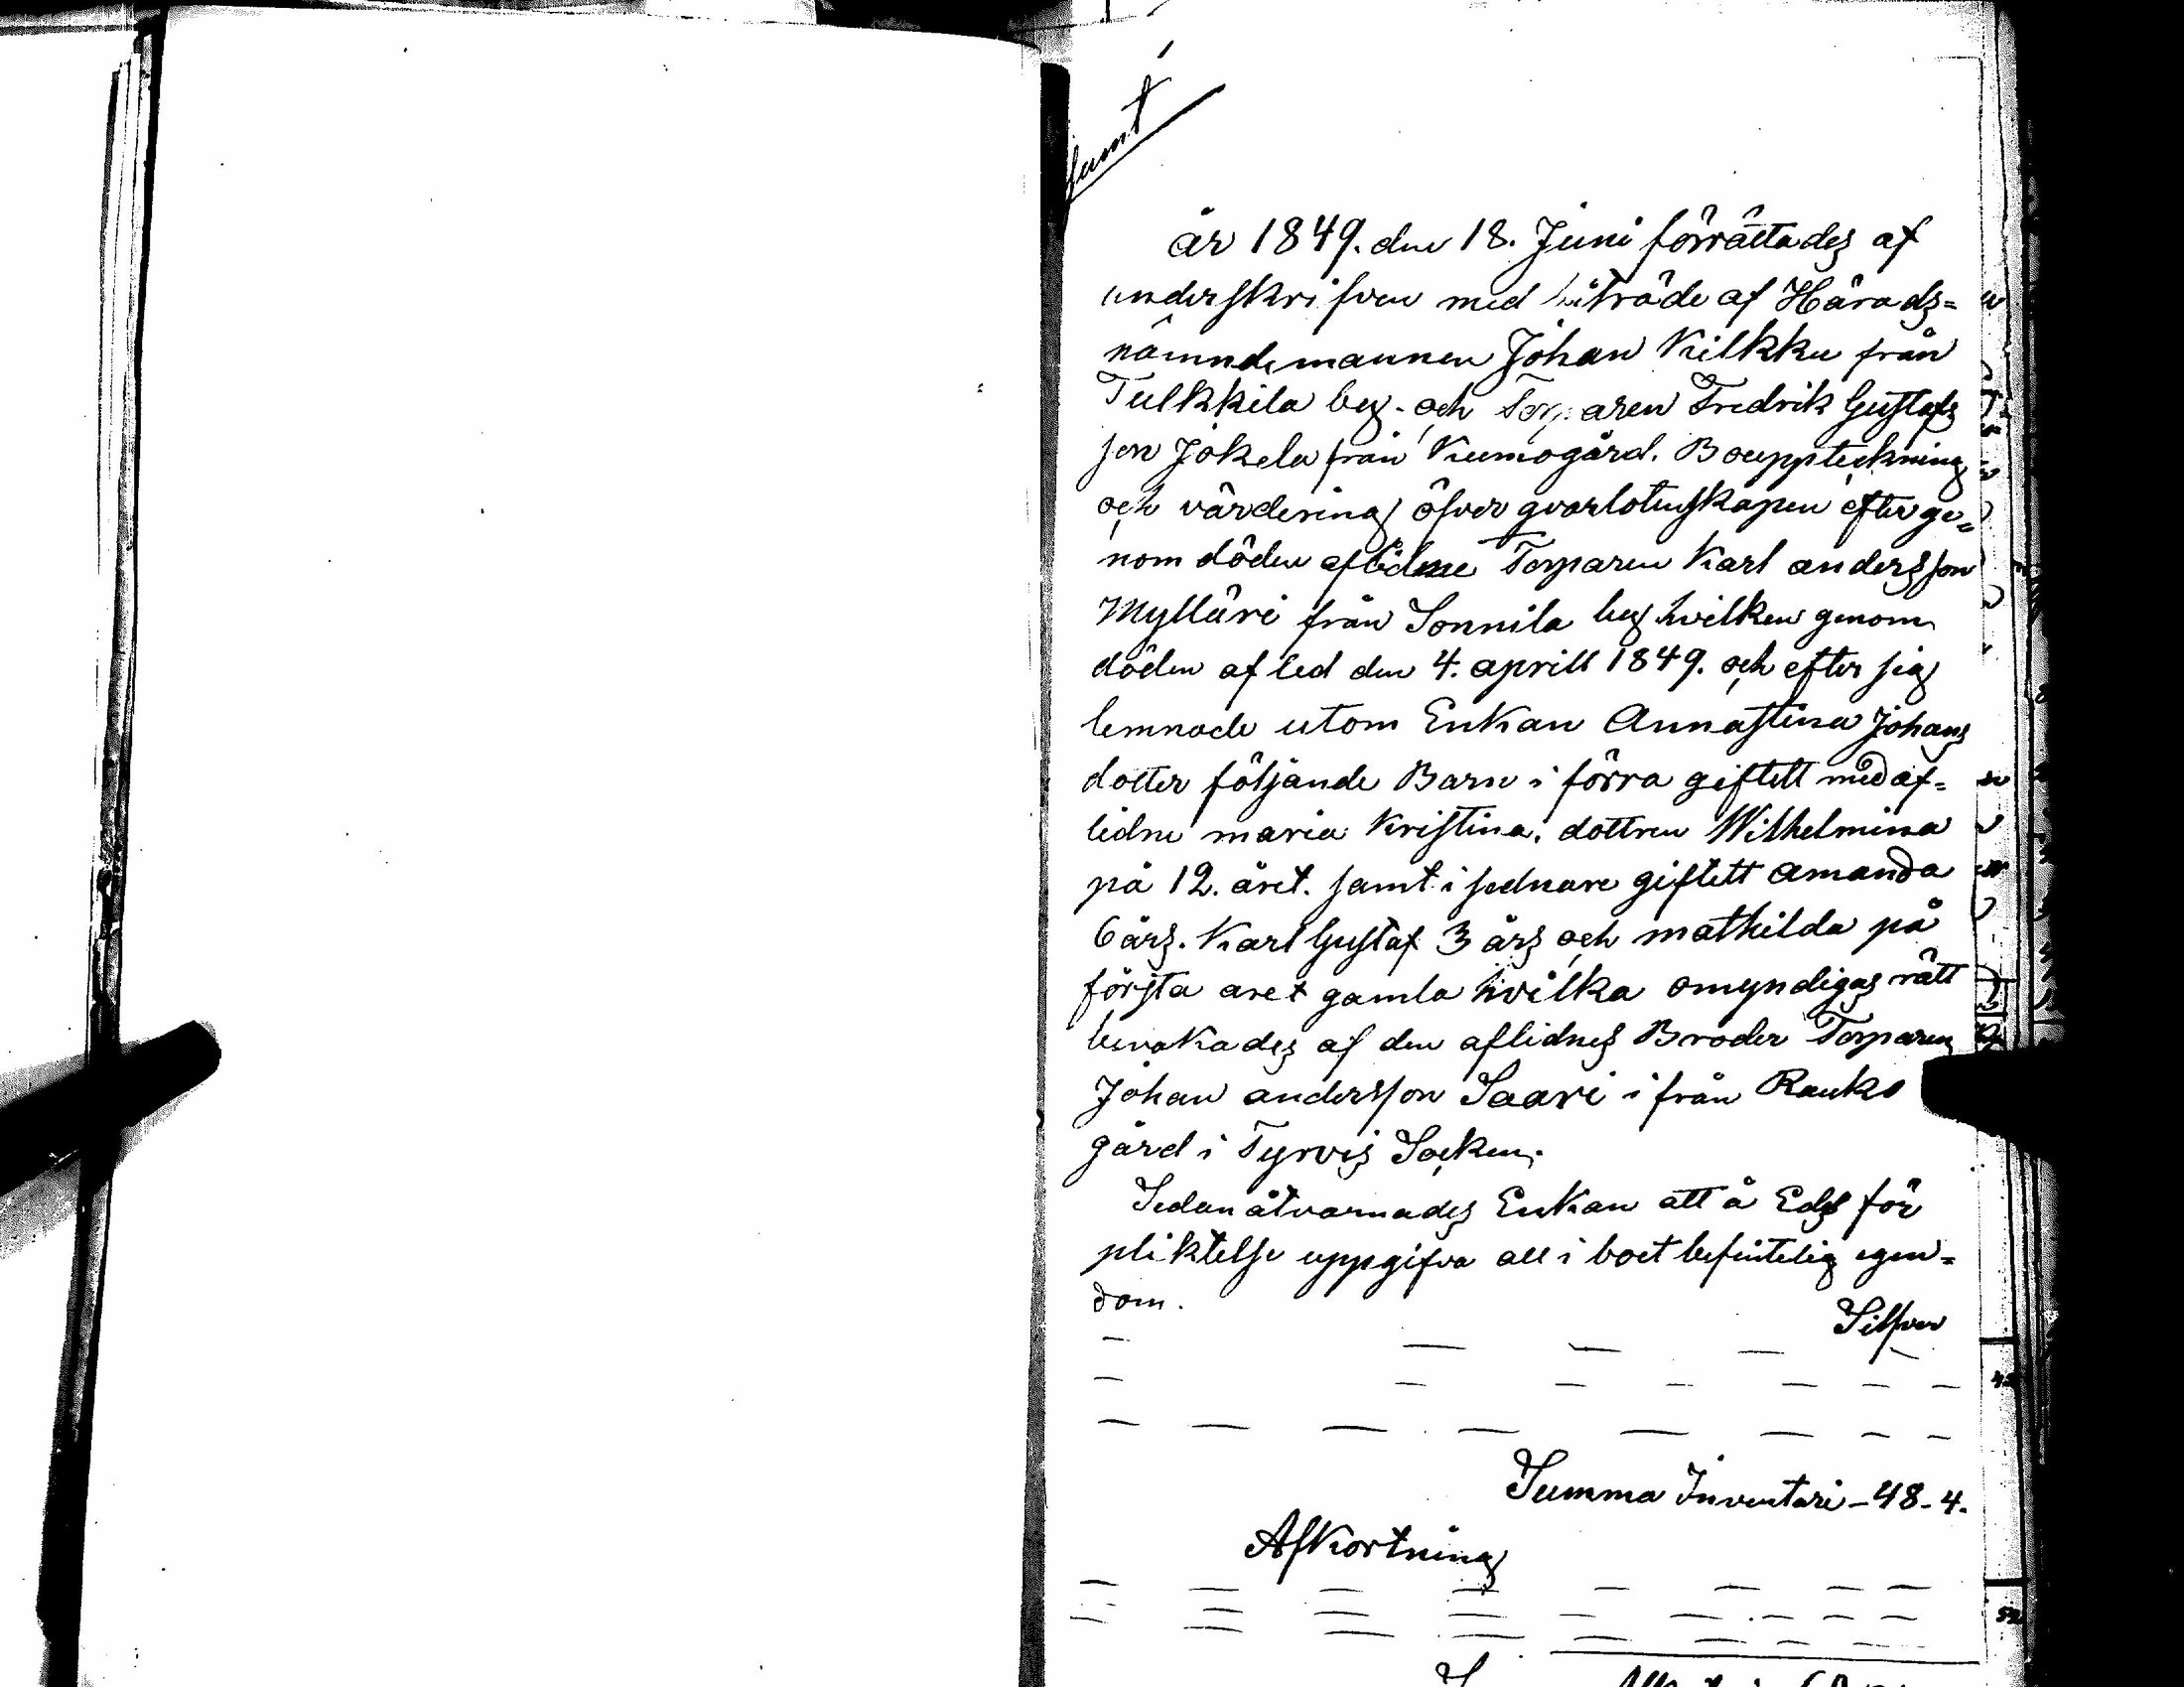 år 1849. den 18. Juni förrättades af
underskrifven med biträde af Härads=
nämndemannen Johan Kilkku från
Tulkkila by. och Torparen Fredrik Gustafs
son Jokela från Kumogård. Bouppteckning
och värdering öfver qvarlotenskapen efter ge=
nom döden aflidne Torparen Karl andersson
Mylläri från Sonnila by hvilken genom
döden afled den 4. aprill 1849. och efter sig
lemnade utom Enkan Annastina Johans
dotter följande Barn i förra giftett med af=
lidne maria Kristina. dottren Wilhelmina
på 12. året. samt i sednare giftett Amanda
6 års. Karl Gustaf 3 års och mathilda på
första aret gamla hvilka omyndigas rätt
bevakades af den aflidnes Broder Torparen
Johan andersson Saari i från Rauko
gård i Tyrvis Socken.
Sedan åtvarnades Enkan att å Eds för
pliktelse uppgifva all i boet befintelig egen=
dom.
Silfver
Summa Inventari - 48 - 4.
Afkortning